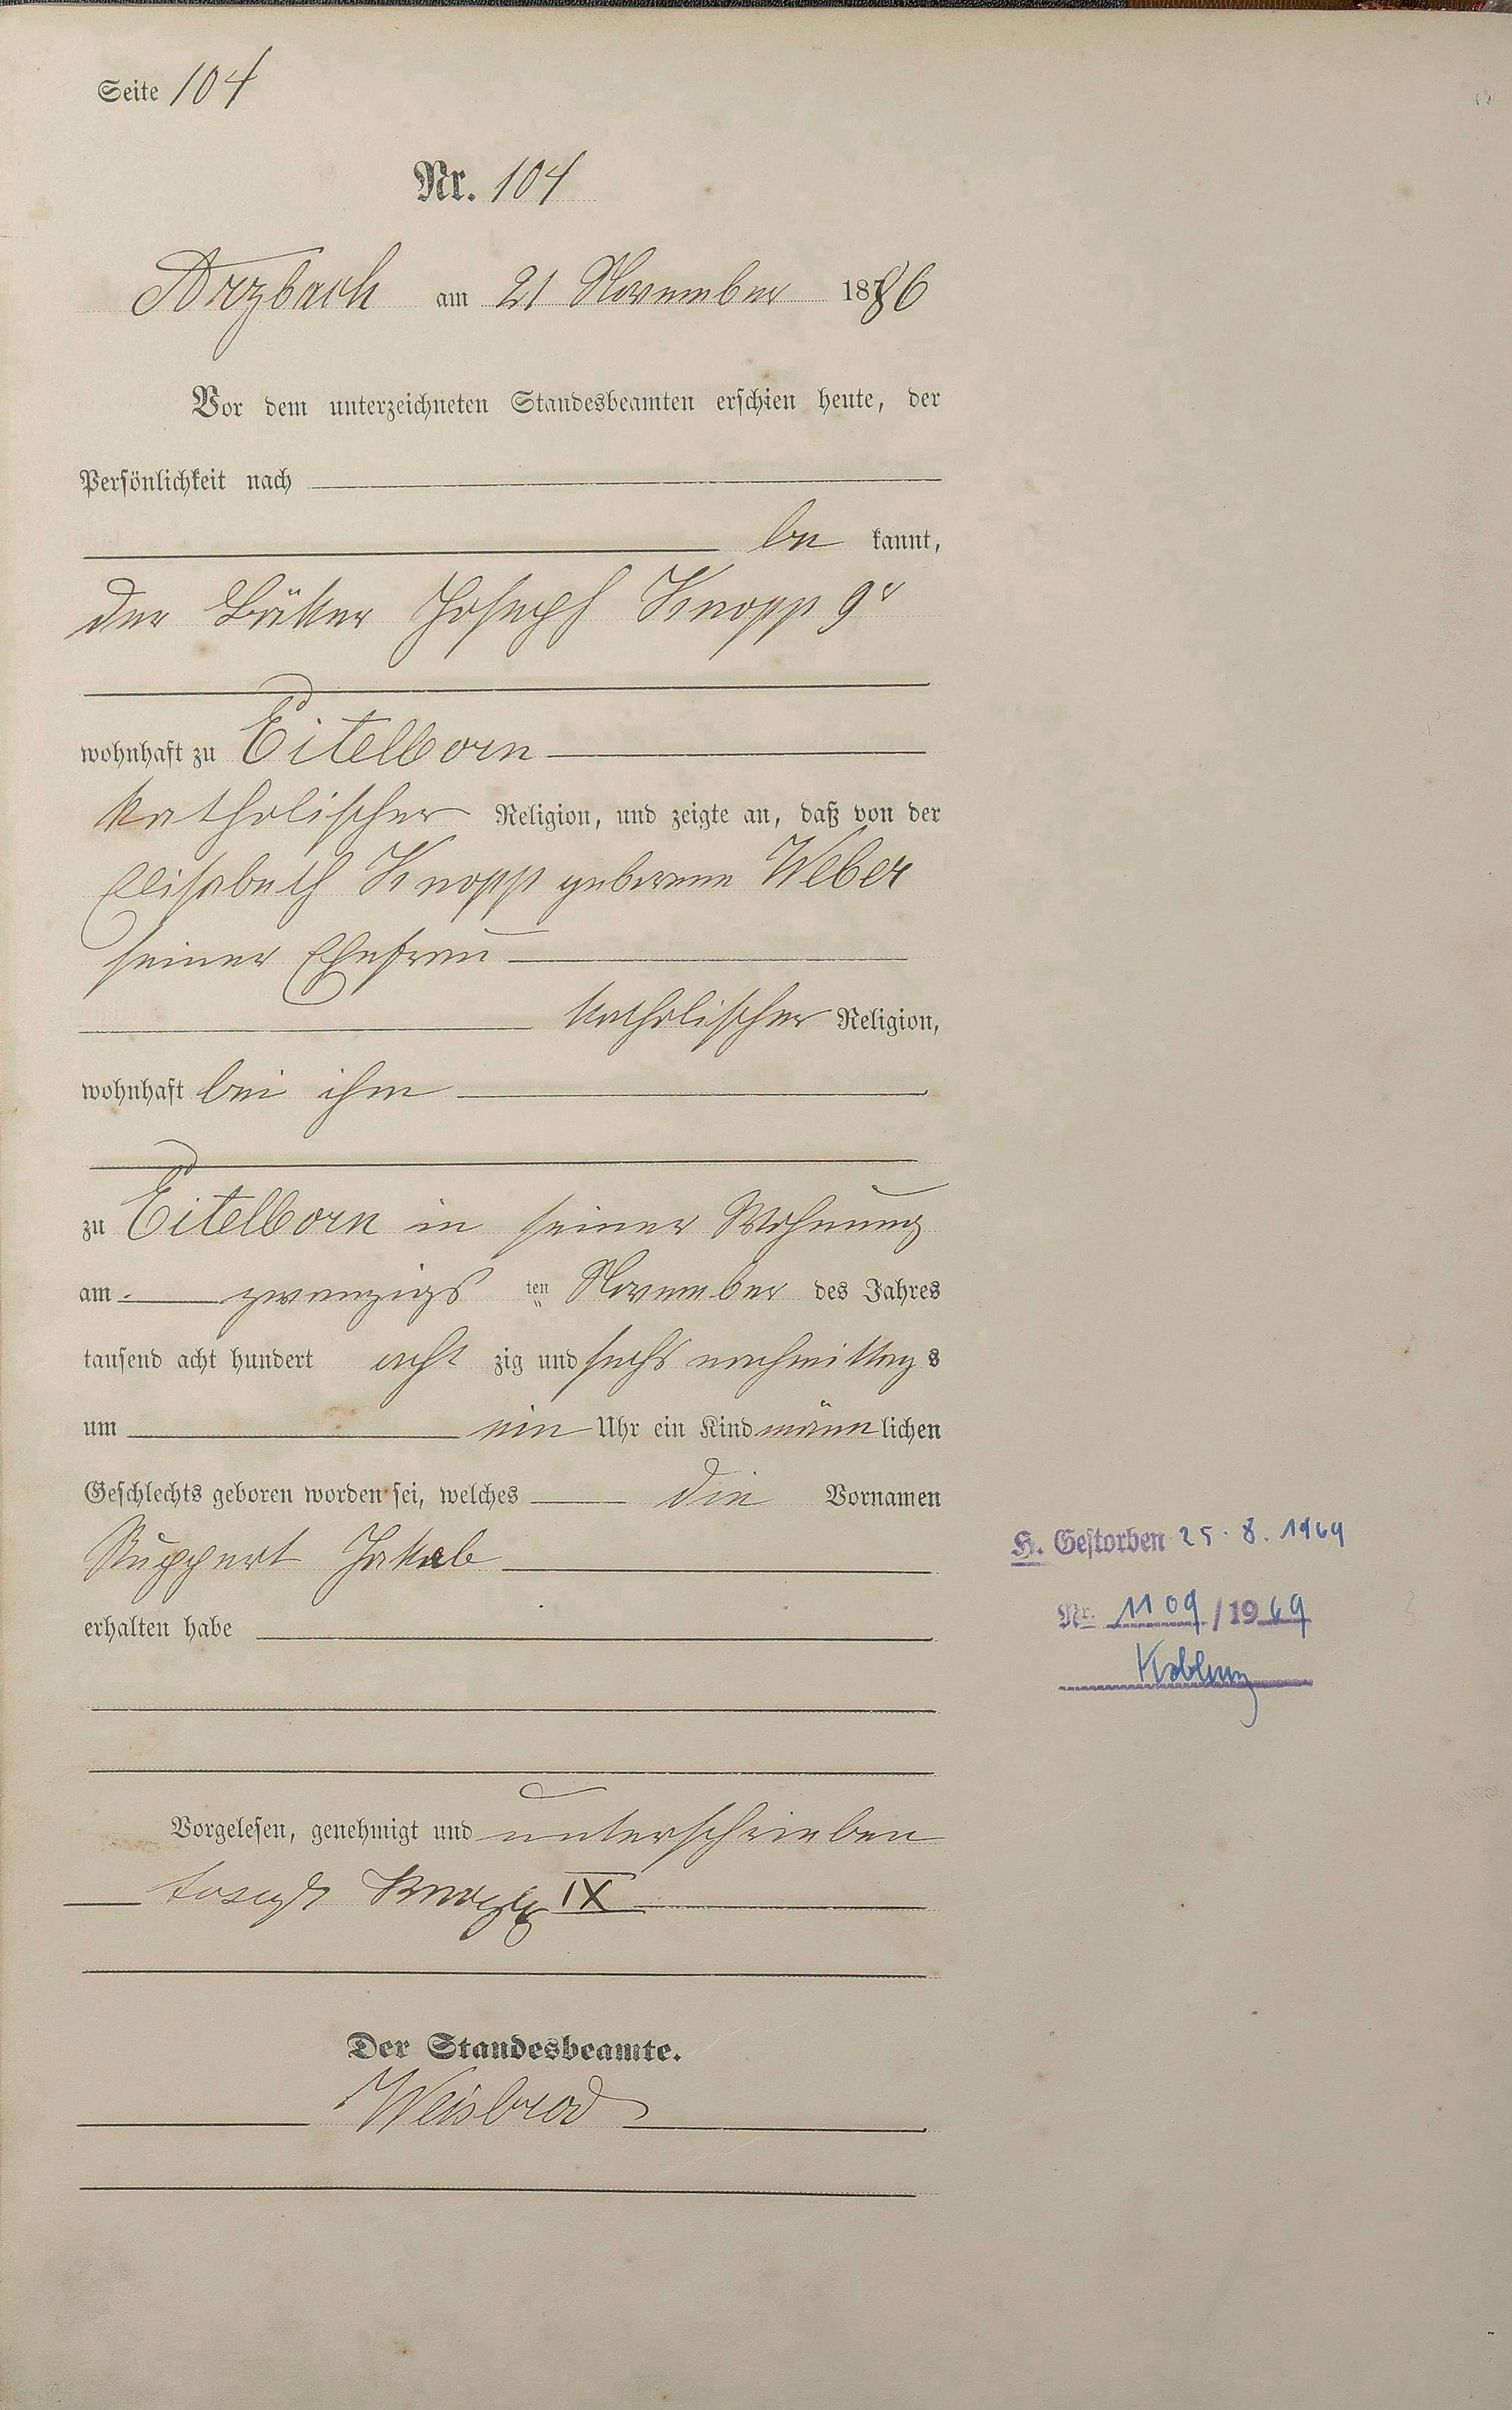 Seite 104
Nr. 104
Arzbach am 21 November 1886
Vor dem unterzeichneten Standesbeamten erschien heute, der
Persönlichkeit nach
be kannt,
der Bäcker Joseph Knopp 9r
wohnhaft zu Eitelborn
katholischer Religion, und zeigte an, daß von der
Elisabeth Knopp geborene Weber
seiner Ehefrau
katholischer Religion,
wohnhaft bei ihm
zu Eitelborn in seiner Wohnung
am zwanzigs ten November des Jahres
tausend acht hundert acht zig und sechs nachmittag s
um ein Uhr ein Kind männ lichen
Geschlechts geboren worden sei, welches die Vornamen
Ruppert Jakob
erhalten habe
Vorgelesen, genehmigt und unterschrieben
Joseph Knopp IX
Der Standesbeamte.
Weisbrod
H. Gestorben 25. 8. 1969
Nr. 1109 / 1969
Koblenz